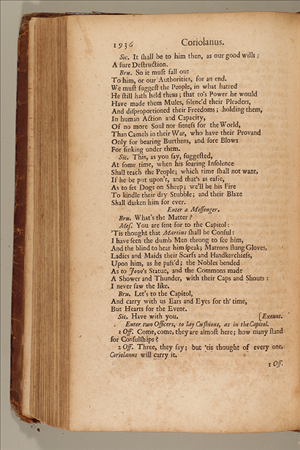 1936 Coriolanus.
Sic. It shall be to him then, as our good wills;
A sure Destruction.
Bru. So it must fall out
To him, or our Authorities, for an end.
We must suggest the People, in what hatred
He still hath held them; that to's Power he would
Have made them Mules, silenc'd their Pleaders,
And disproportioned their Freedoms; holding them,
In human Action and Capacity,
Of no more Soul nor fitness for the World,
Than Camels in their War, who have their Provand
Only for bearing Burthens, and sore Blows
For sinking under them.
Sic. This, as you say, suggested,
At some time, when his soaring Insolence
Shall teach the People; which time shall not want,
If he be put upon't, and that's as easie,
As to set Dogs on Sheep; we'll be his Fire
To kindle their dry Stubble; and their Blaze
Shall darken him for ever.
Enter a Messenger.
Bru. What's the Matter?
Mes. You are sent for to the Capitol:
'Tis thought that Martius shall be Consul:
I have seen the dumb Men throng to see him,
And the blind to hear him speak; Matrons flung Gloves,
Ladies and Maids their Scarfs and Handkerchiefs,
Upon him, as he pass'd; the Nobles bended
As to Jove's Statue, and the Commons made
A Shower and Thunder, with their Caps and Shouts:
I never saw the like.
Bru. Let's to the Capitol,
And carry with us Ears and Eyes for th' time,
But Hearts for the Event.
Sic. Have with you. [Exeunt.
Enter two Officers, to lay Cushions, as in the Capitol.
1 Off. Come, come, they are almost here; how many stand
for Consulships?
2 Off. Three, they say; but 'tis thought of every one,
Coriolanus will carry it.
1 Off.